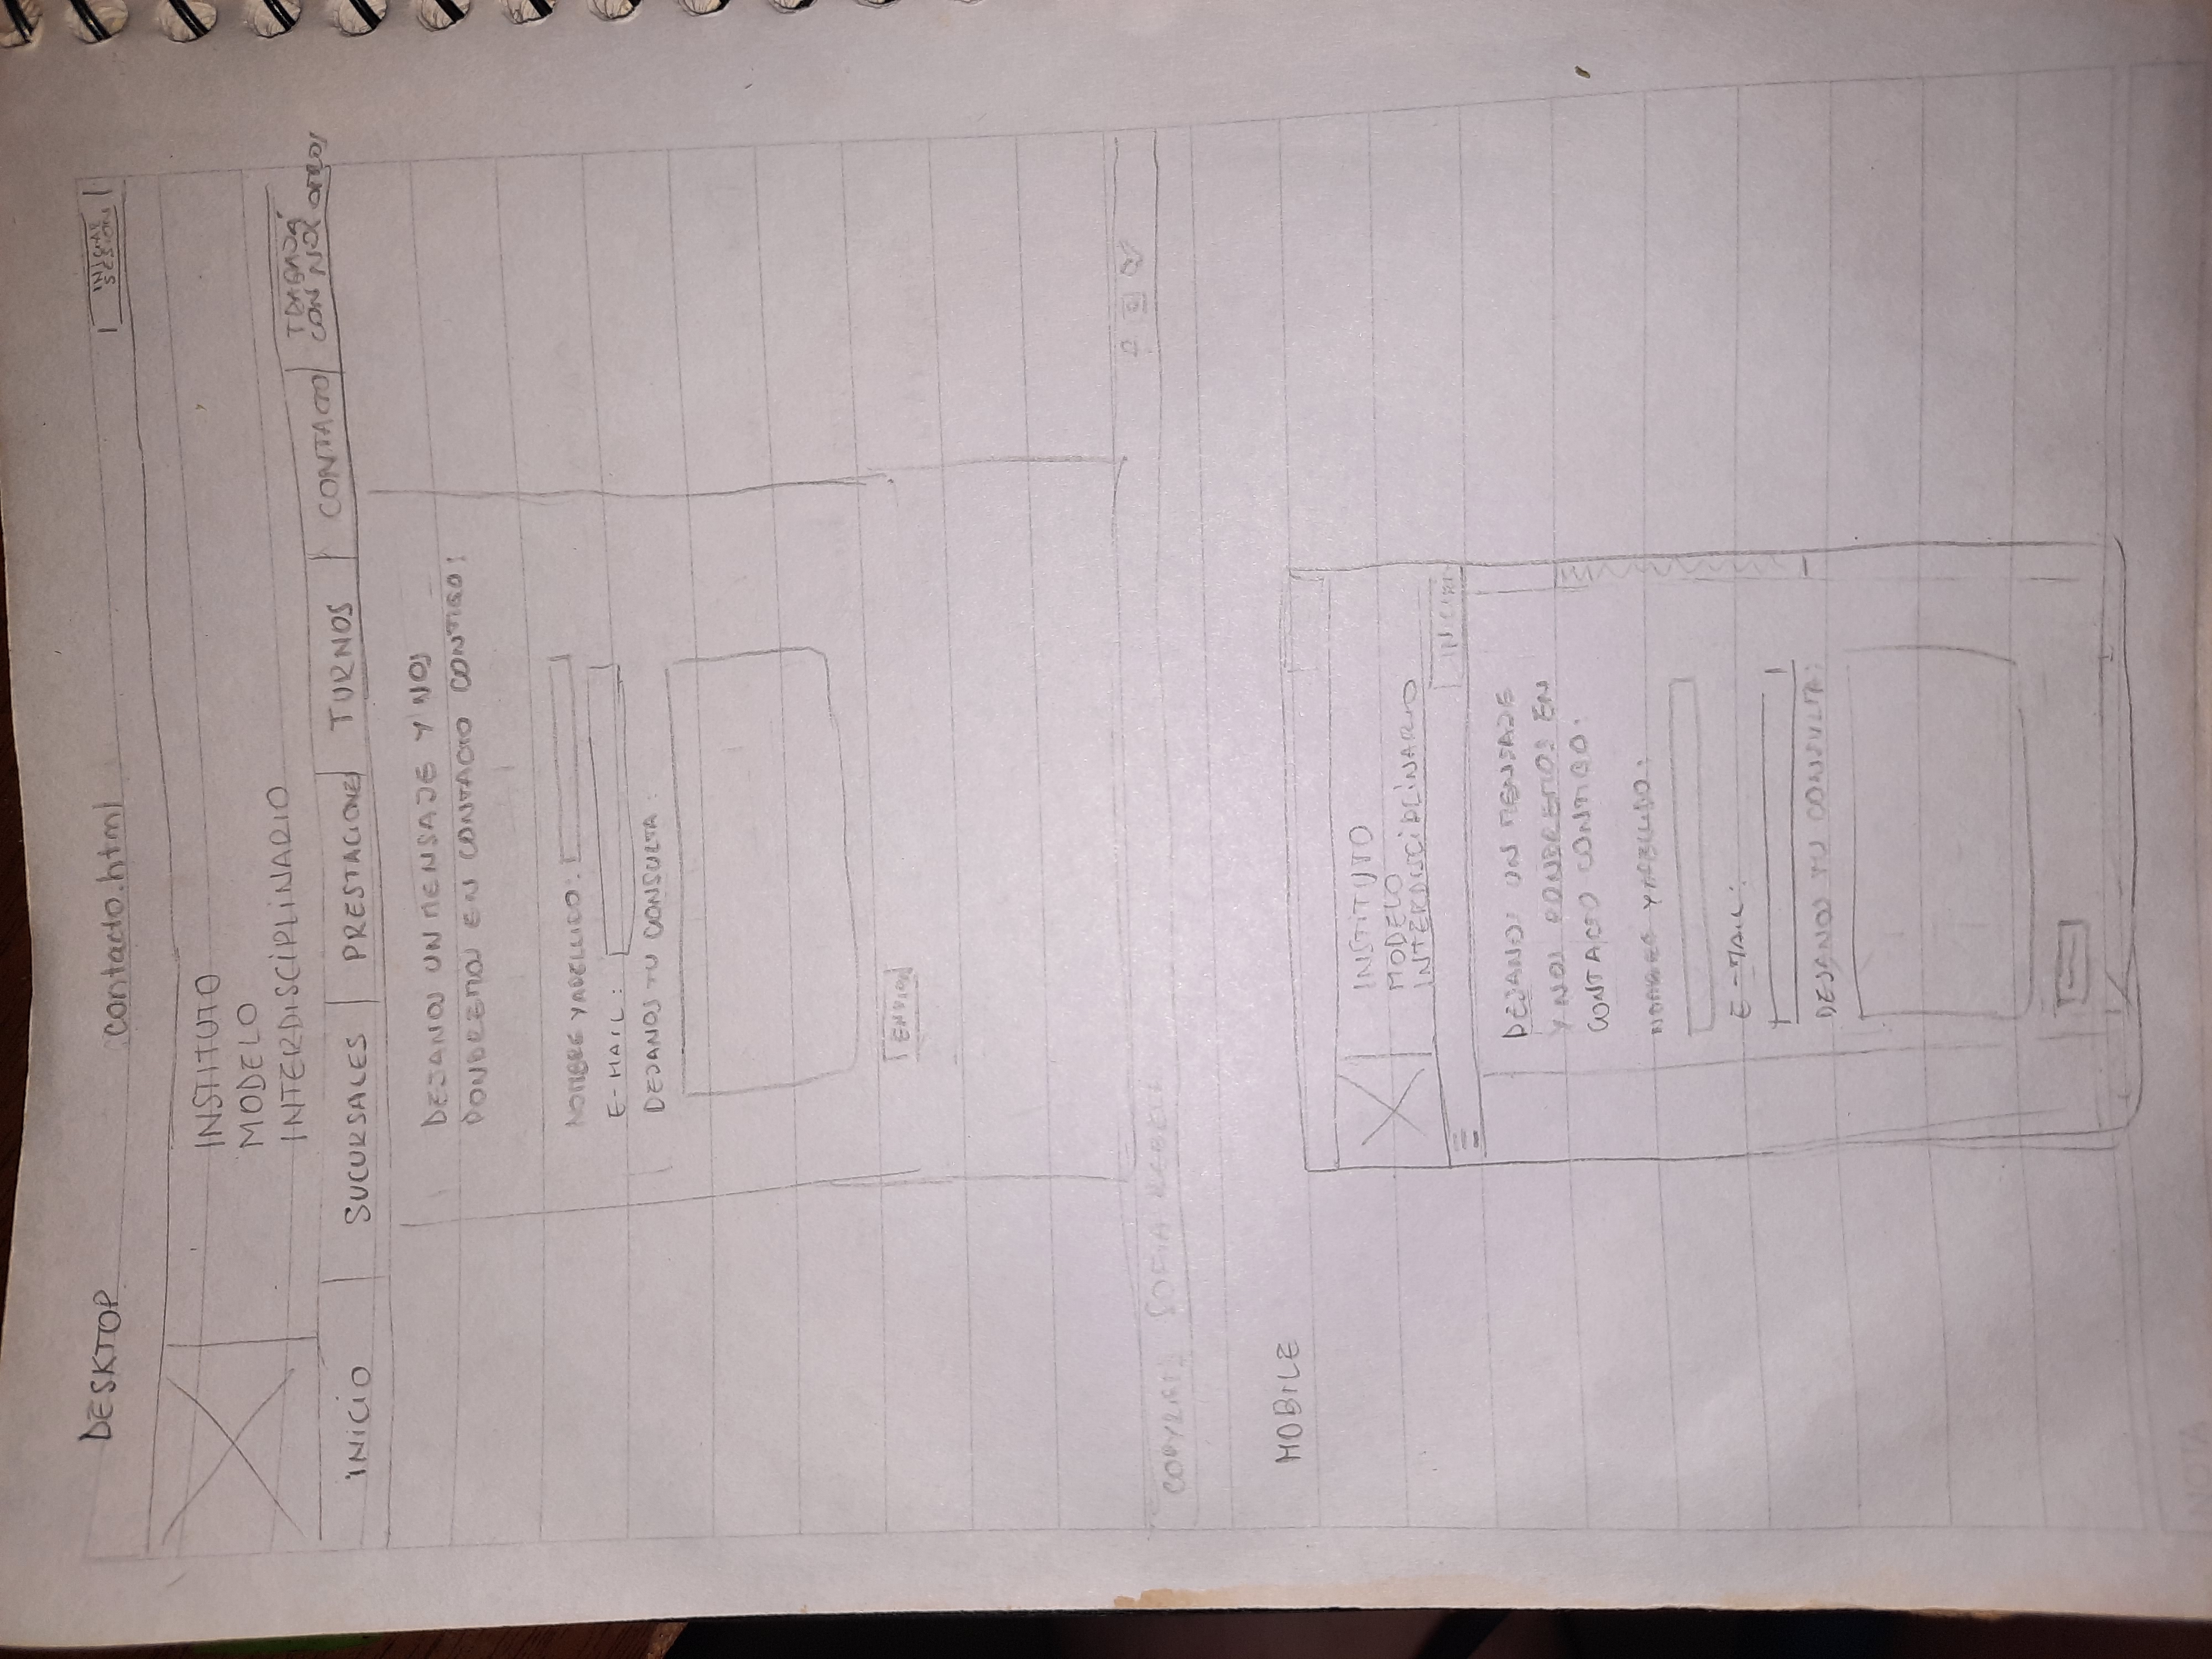 DESKTOP
contacto.html
INICIAR
SESION
INSTITUTO
MODELO
INTERDISCIPLINARIO
INICIO
SUCURSALES
PRESTACIONES
TURNOS
CONTACTO
TRABAJÁ
CON NOSOTROS
DEJANOS UN MENSAJE Y NOS
PONDREMOS EN CONTACTO CONTIGO:
NOMBRE Y APELLIDO:
E-MAIL:
DEJANOS TU CONSULTA:
SOFIA
MOBILE
INSTITUTO
MODELO
INTERDISCIPLINARIO
DEJANOS UN MENSAJE
Y NOS PONDREMOS EN
CONTACTO CONTIGO:
NOMBRE Y APELLIDO:
E-MAIL:
DEJANOS TU CONSULTA:
NOTA